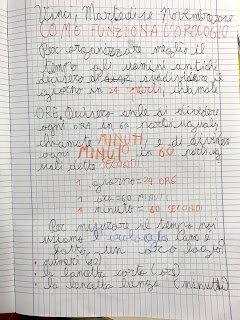 Vinci, Martedì 20 Novembre 2018
COME FUNZIONA L'OROLOGIO
Per organizzare meglio il
tempo gli uomini antichi
decisero di suddividere il
giorno in 24 parti, chiamate
ORE. Decisero anche di dividere
ogni ORA in 60 parti uguali
chiamate MINUTI e di dividere
ogni MINUTO in 60 parti ug
uali dette SECONDI
1 giorno = 24 ORE
1 ora = 60 MINUTI
1 minuto = 60 SECONDI
Per misurare il tempo noi
usiamo l'orologio. Com'è
fatto un orologio?
numeri (12)
la lancetta corta (ore)
la lancetta lunga (minuti)